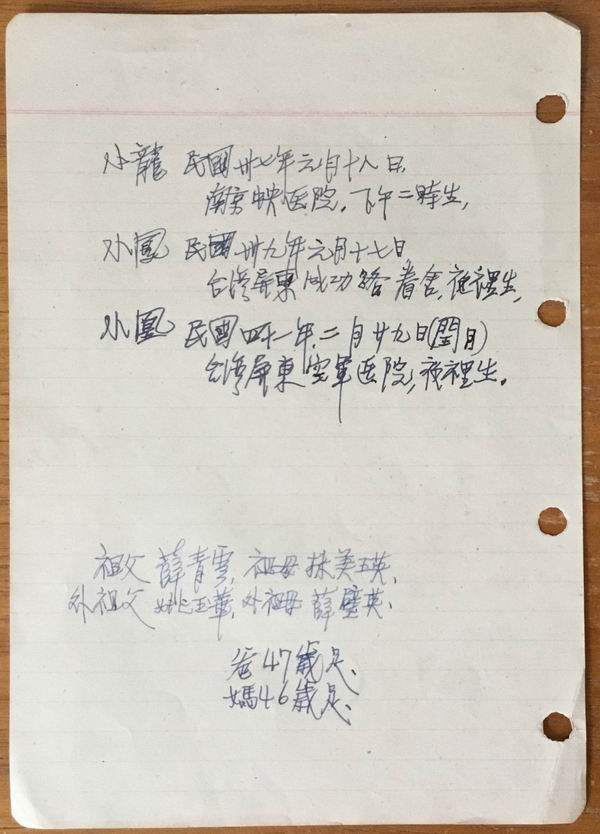 小龍 民國卅七年元月十八日
南京中央医院，下午二時生，
小鳳 民國卅九年元月十七日
台灣屏東成功路眷舍，夜裡生，
小凰 民國四十一年，二月廿九日(閏月)
台灣屏東空軍医院，夜裡生。
祖父 薛青雲，祖母 美英、
外祖父 姚玉華，外祖母 薛璧英、
爸47歲足、
媽46歲足、